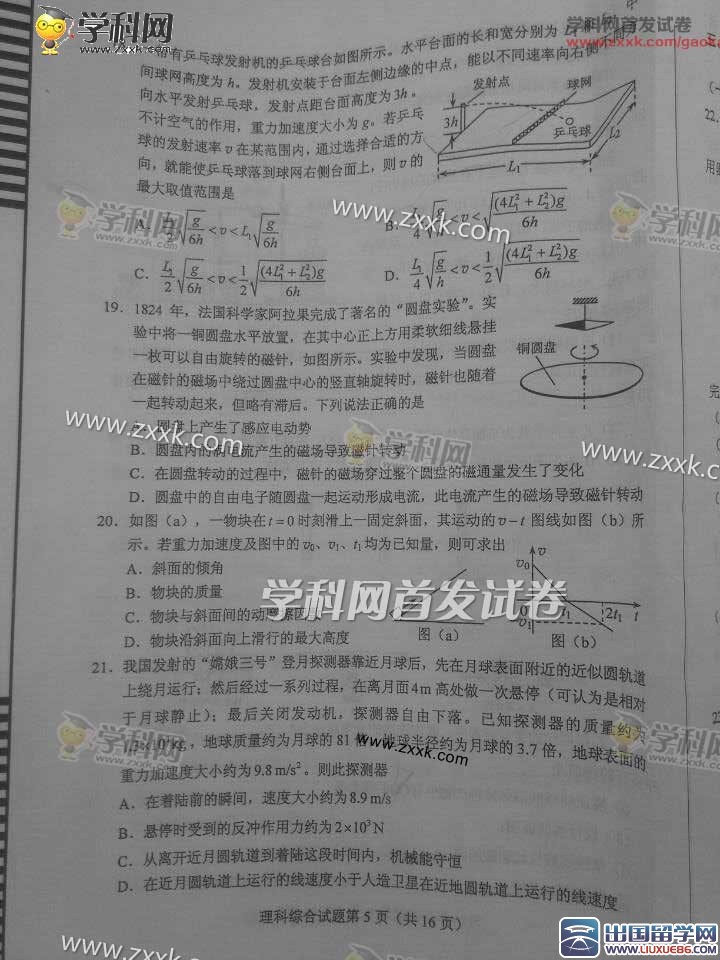 学科网首发试卷
www.zxxk.com/gaok
学科网
www.zxxk.com
带有乒乓球发射机的乒乓球台如图所示。水平台面的长和宽分别为
间球网高度为 h。发射机安装于台面左侧边缘的中点，能以不同速率向右侧
向水平发射乒乓球，发射点距台面高度为3h。
不计空气的作用，重力加速度大小为 g。若乒乓
球的发射速率 v 在某范围内，通过选择合适的方
向，就能使乒乓球落到球网右侧台面上，则 v 的
最大取值范围是
发射点
球网
3h
乒乓球
L₂
L₁
√(g/6h) < v < L₁√(g/6h)
B. L₁/4 √(g/h) < v < √((4L₁²+L₂²)g/6h)
C. L₁/2 √(g/6h) < v < 1/2 √((4L₁²+L₂²)g/6h)
D. L₁/4 √(g/h) < v < 1/2 √((4L₁²+L₂²)g/6h)
19．1824 年，法国科学家阿拉果完成了著名的“圆盘实验”。实
验中将一铜圆盘水平放置，在其中心正上方用柔软细线悬挂
一枚可以自由旋转的磁针，如图所示。实验中发现，当圆盘
在磁针的磁场中绕过圆盘中心的竖直轴旋转时，磁针也随着
一起转动起来，但略有滞后。下列说法正确的是
铜圆盘
A．圆盘上产生了感应电动势
B．圆盘内的涡电流产生的磁场导致磁针转动
C．在圆盘转动的过程中，磁针的磁场穿过整个圆盘的磁通量发生了变化
D．圆盘中的自由电子随圆盘一起运动形成电流，此电流产生的磁场导致磁针转动
20．如图（a），一物块在 t = 0 时刻滑上一固定斜面，其运动的 v－t 图线如图（b）所
示。若重力加速度及图中的 v₀、v₁、t₁ 均为已知量，则可求出
A．斜面的倾角
B．物块的质量
C．物块与斜面间的动摩擦因数
D．物块沿斜面向上滑行的最大高度
v
v₀
0
t₁
2t₁
t
v₁
图（a）
图（b）
学科网首发试卷
21．我国发射的“嫦娥三号”登月探测器靠近月球后，先在月球表面附近的近似圆轨道
上绕月运行；然后经过一系列过程，在离月面4 m 高处做一次悬停（可认为是相对
于月球静止）；最后关闭发动机，探测器自由下落。已知探测器的质量约为
1.3×10³kg，地球质量约为月球的 81 倍，地球半径约为月球的 3.7 倍，地球表面的
重力加速度大小约为 9.8 m/s²。则此探测器
A．在着陆前的瞬间，速度大小约为 8.9 m/s
B．悬停时受到的反冲作用力约为 2×10³N
C．从离开近月圆轨道到着陆这段时间内，机械能守恒
D．在近月圆轨道上运行的线速度小于人造卫星在近地圆轨道上运行的线速度
理科综合试题第 5 页（共 16 页）
出国留学网
WWW.LIUXUE86.COM